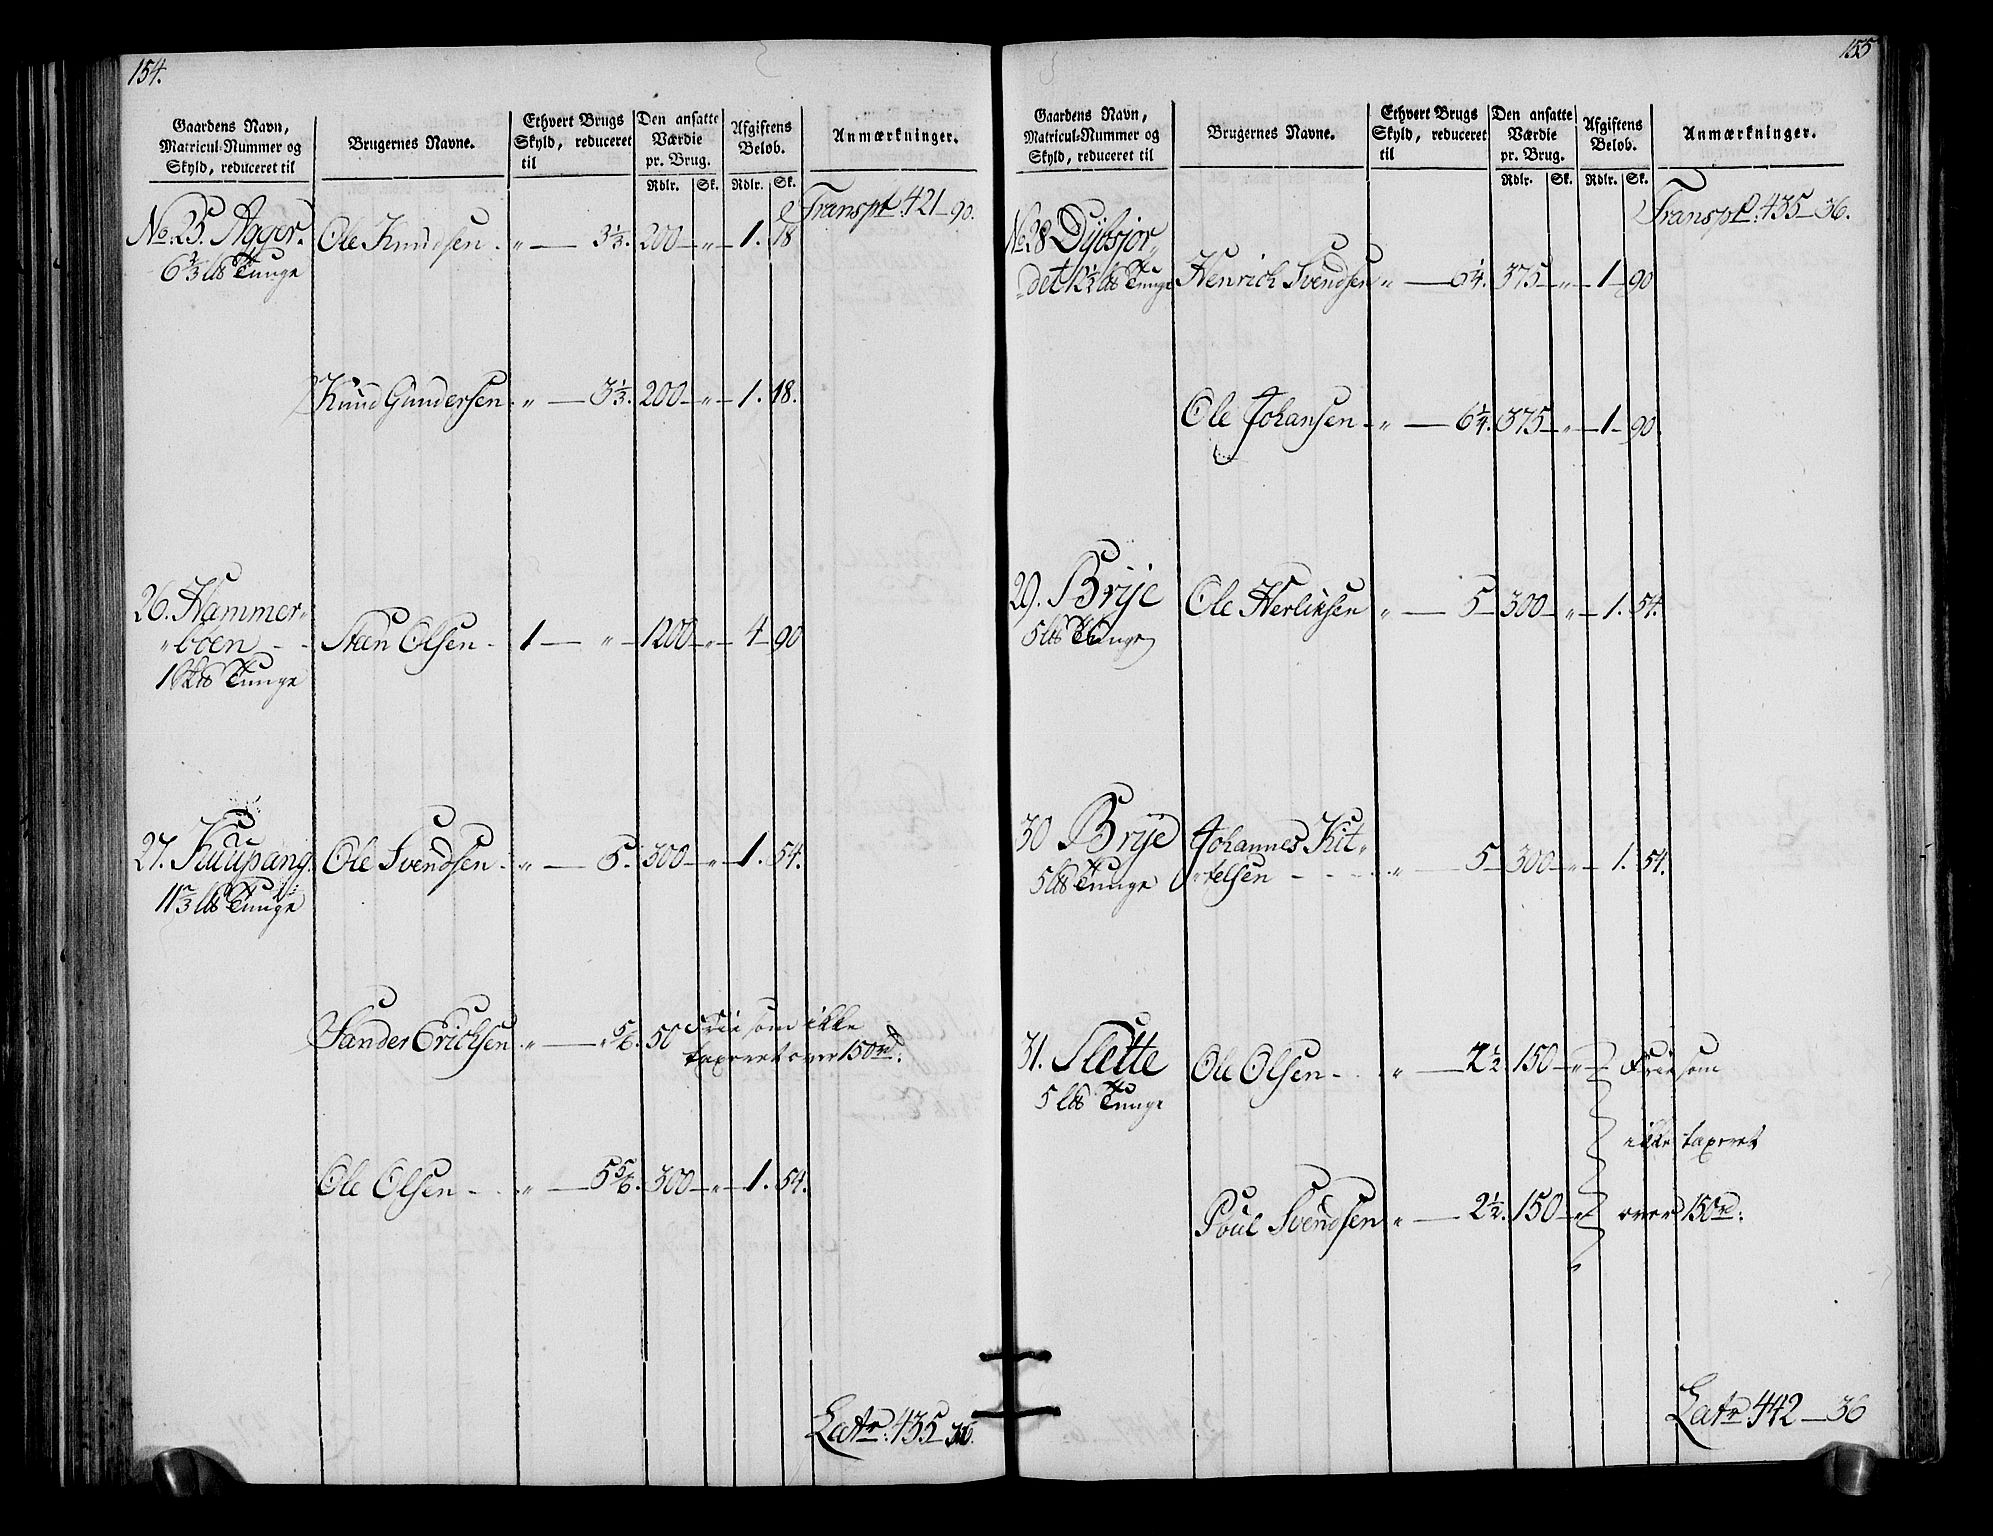 154.
Gaardens Navn,
Matricul-Nummer og
Skyld, reduceret til
Brugernes Navne.
Ethvert Brugs
Skyld, reduceret
til
Den ansatte
Værdie
pr. Brug.
Rdlr. Sk.
Afgiftens
Beløb.
Rdlr. Sk.
Anmærkninger.
Transpt. 421-90.
No. 25. Ager. Ole Knudsen. „ — 3⅓. 200 — „ — 1. 18
6⅔ Lb Tunge
Knud Gundersen. „ — 3⅓. 200 — „ — 1. 18.
26. Hammer-
„boen - - Sten Olsen - 1 — „ — 1200 — „ — 4 — 90
1 Tunge
27. Kuupang. Ole Svendsen. „ — 5. 300 — „ — 1. 54.
11⅔ Lb Tunge
Sander Ericksen. „ — „ ⅚. 50 Frie som ikke
taxeret over 150 rd.
Ole Olsen - . „ — 5⅚. 300 — „ — 1. 54.
Latr. 435-36.
155
Gaardens Navn,
Matricul-Nummer og
Skyld, reduceret til
Brugernes Navne.
Ethvert Brugs
Skyld, reduceret
til
Den ansatte
Værdie
pr. Brug.
Rdlr. Sk.
Afgiftens
Beløb.
Rdlr. Sk.
Anmærkninger.
Transpt. 435-36.
No. 28 Dybsjor-
„det 12½ Lb Tunge Henrich Svendsen „ — 6¼. 375 — „ — 1 — 90
Ole Johansen - „ — 6¼. 375 — „ — 1 — 90.
29. Brye Ole Herliksen „ — 5 — 300 — „ — 1. 54.
5 Lb Tunge
30 Brye Johannes Kit-
5 Lb Tunge „telsen - - - „ — 5 — 300 — „ — 1. 54.
31. Slette Ole Olsen - . „ — 2½. 150 — „ — Frie som
5 Lb Tunge
ikke taxeret
Poul Svendsen „ — 2½. 150 — „ over 150 rd.
Latr. 442 — 36